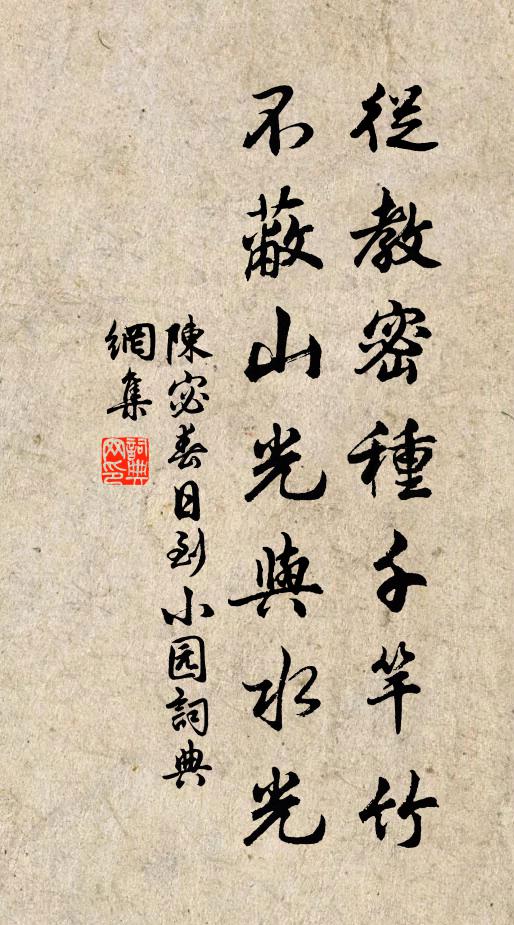 從教密種千竿竹
不蔽山光與水光
陳宓春日到小园詞典
網集
詞典
网印